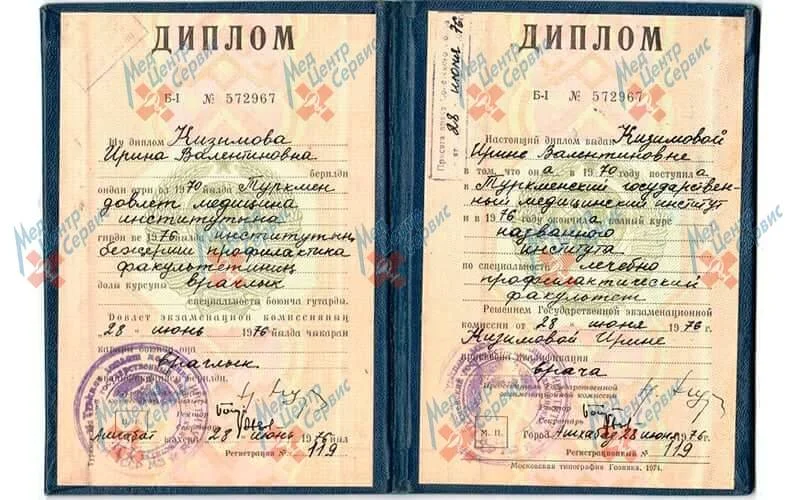 ДИПЛОМ
Б-I № 572967
Шу диплом Кизимова
Ирина Валентиновна
берилди
ондан отри ол 1970 йылда Туркмен
довлет медицина
институтына
гирди ве 1976 йылда институтың
бежерги профилактика
факультетиниң
долы курсуны врачлык
специальности боюнча гутарды.
Довлет экзаменацион комиссияниң
28 июнь 1976 йылда чыкаран
карары боюнча оңа
врачлык
квалификация берилди.
Ректор
Секретарь
Ашгабат шахери 28 июнь 1976 йыл
Регистрацион № 119
ДИПЛОМ
Б-I № 572967
Настоящий диплом выдан Кизимовой
Ирине Валентиновне
в том, что она в 1970 году поступила
в Туркменский государствен-
ный медицинский институт
и в 1976 году окончила полный курс
названного
института
по специальности лечебно
профилактический
факультет
Решением Государственной экзаменационной
комиссии от 28 июня 1976 г.
Кизимовой Ирине
присвоена квалификация
врача
Председатель Государственной
экзаменационной комиссии
Ректор
Секретарь
М. П.
Город Ашхабад 28 июня 1976 г.
Регистрационный № 119
Московская типография Гознака. 1974.
28 июня 76 г.
Мед Центр Сервис
Мед Центр Сервис
Мед Центр Сервис
Мед Центр Сервис
Мед Центр Сервис
Мед Центр Сервис
Мед Центр Сервис
Мед Центр Сервис